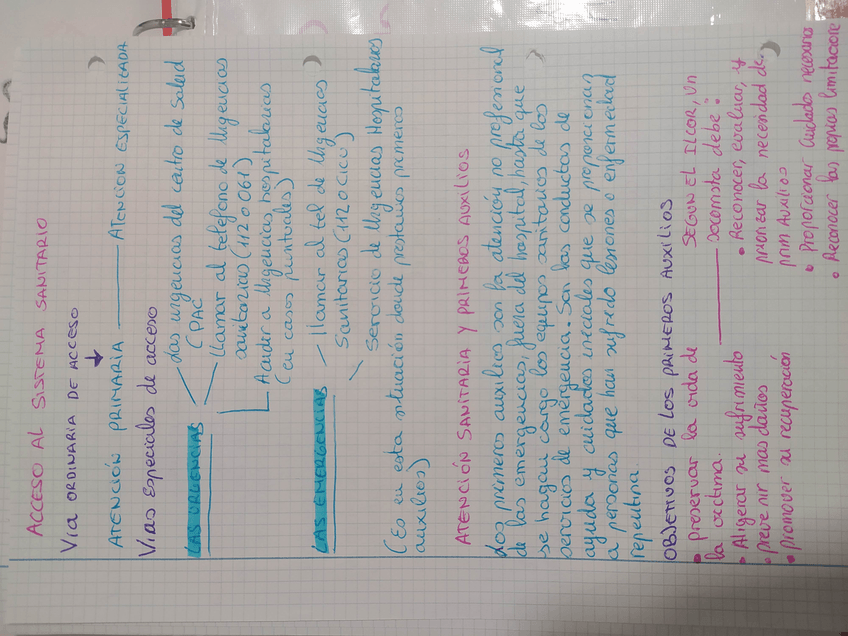 ACCESO AL SISTEMA SANITARIO
VIA ORDINARIA DE ACCESO
ATENCIÓN PRIMARIA ATENCIÓN ESPECIALIZADA
VIAS ESPECIALES DE ACCESO
LAS URGENCIAS
Las urgencias del centro de salud
(PAC
llamar al teléfono de Urgencias
sanitarias (112 o 061)
Acudir a Urgencias hospitalarias
(en casos puntuales)
LAS EMERGENCIAS
llamar al tel de Urgencias
Sanitarias (112 o CICU)
Servicio de Urgencias Hospitalarias
(Es en esta situación donde prestamos primeros
auxilios)
ATENCIÓN SANITARIA Y PRIMEROS AUXILIOS
Los primeros auxilios son la atención no profesional
de las emergencias, fuera del hospital, hasta que
se hagan cargo los equipos sanitarios de los
servicios de emergencia. Son las conductas de
ayuda y cuidados iniciales que se proporcionan
a personas que han sufrido lesiones o enfermedad
repentina.
OBJETIVOS DE LOS PRIMEROS AUXILIOS
• preservar la vida de
la victima.
• Aligerar su sufrimiento
• prevenir mas daños
• promover su recuperación
SEGUN EL ILCOR, Un
socorrista debe:
• Reconocer, evaluar, y
priorizar la necesidad de
prim Auxilios
• Proporcionar cuidados necesarios
• Reconocer las propias limitacione